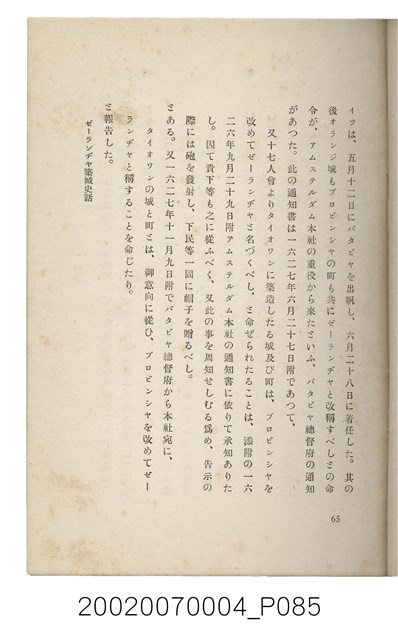 イツは、五月十二日にバタビヤを出帆し、六月二十八日に着任した。其の
後オランジ城もプロビンシヤの町も共にゼーランヂヤと改稱すべしとの命
令が、アムステルダム本社の重役から來たといふ、バタビヤ總督府の通知
があつた。此の通知書は一六二七年六月二十七日附であつて、
又十七人會よりタイオワンに築造したる城及び町は、プロビンシヤを
改めてゼーランヂヤと名づくべし、と命ぜられたることは、添附の一六
二六年九月二十九日附アムステルダム本社の通知書に依りて承知ありた
し。因て貴下等も之に從ふべく、又此の事を周知せしむる爲め、告示の
際には砲を發射し、下民等一同に帽子を贈るべし。
とある。又一六二七年十一月九日附でバタビヤ總督府から本社宛に、
タイオワンの城と町とは、御意向に從ひ、プロビンシヤを改めてゼー
ランヂヤと稱することを命じたり。
と報告した。
ゼーランヂヤ築城史話
65
20020070004_P085